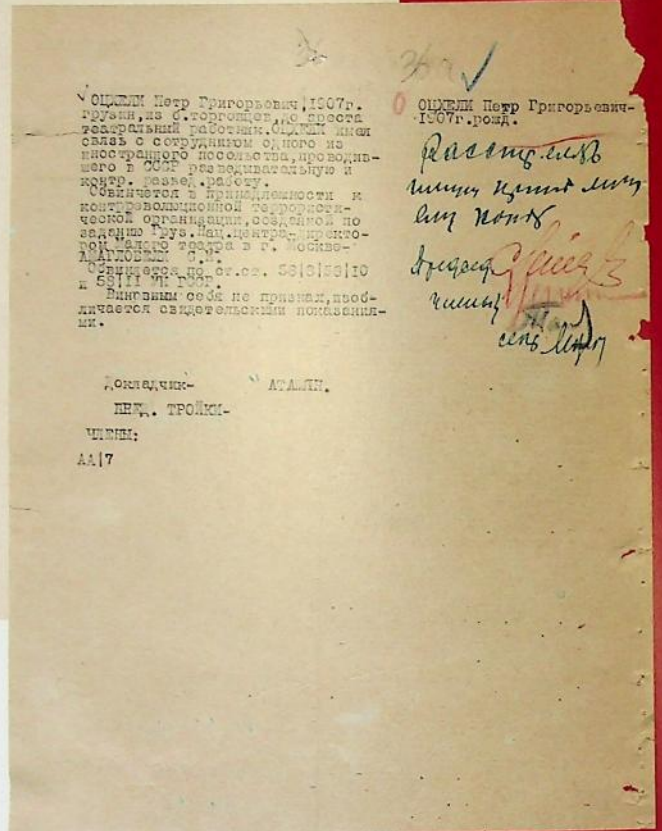 36
ОЦХЕЛИ Петр Григорьевич,1907г.
грузин,из б.торговцев,до ареста
театральный работник.ОЦХЕЛИ имел
связь с сотрудником одного из
иностранного посольства,проводив-
шего в СССР разведывательную и
контр. развед.работу.
Обвиняется в принадлежности к
контрреволюционной террористи-
ческой организации,созданной по
заданию Груз.Нац.центра-директо-
ром Малого театра в г. Москве-
АМАГЛОБЕЛИ С.И.
Обвиняется по ст.ст. 58|8|58|10
и 58|11 УК ГССР.
Виновным себя не признал,изоб-
личается свидетельскими показания-
ми.
Докладчик- АТАШЯН.
ПРЕД. ТРОЙКИ-
ЧЛЕНЫ:
АА|7
ОЦХЕЛИ Петр Григорьевич-
1907г.рожд.
Расстрелять